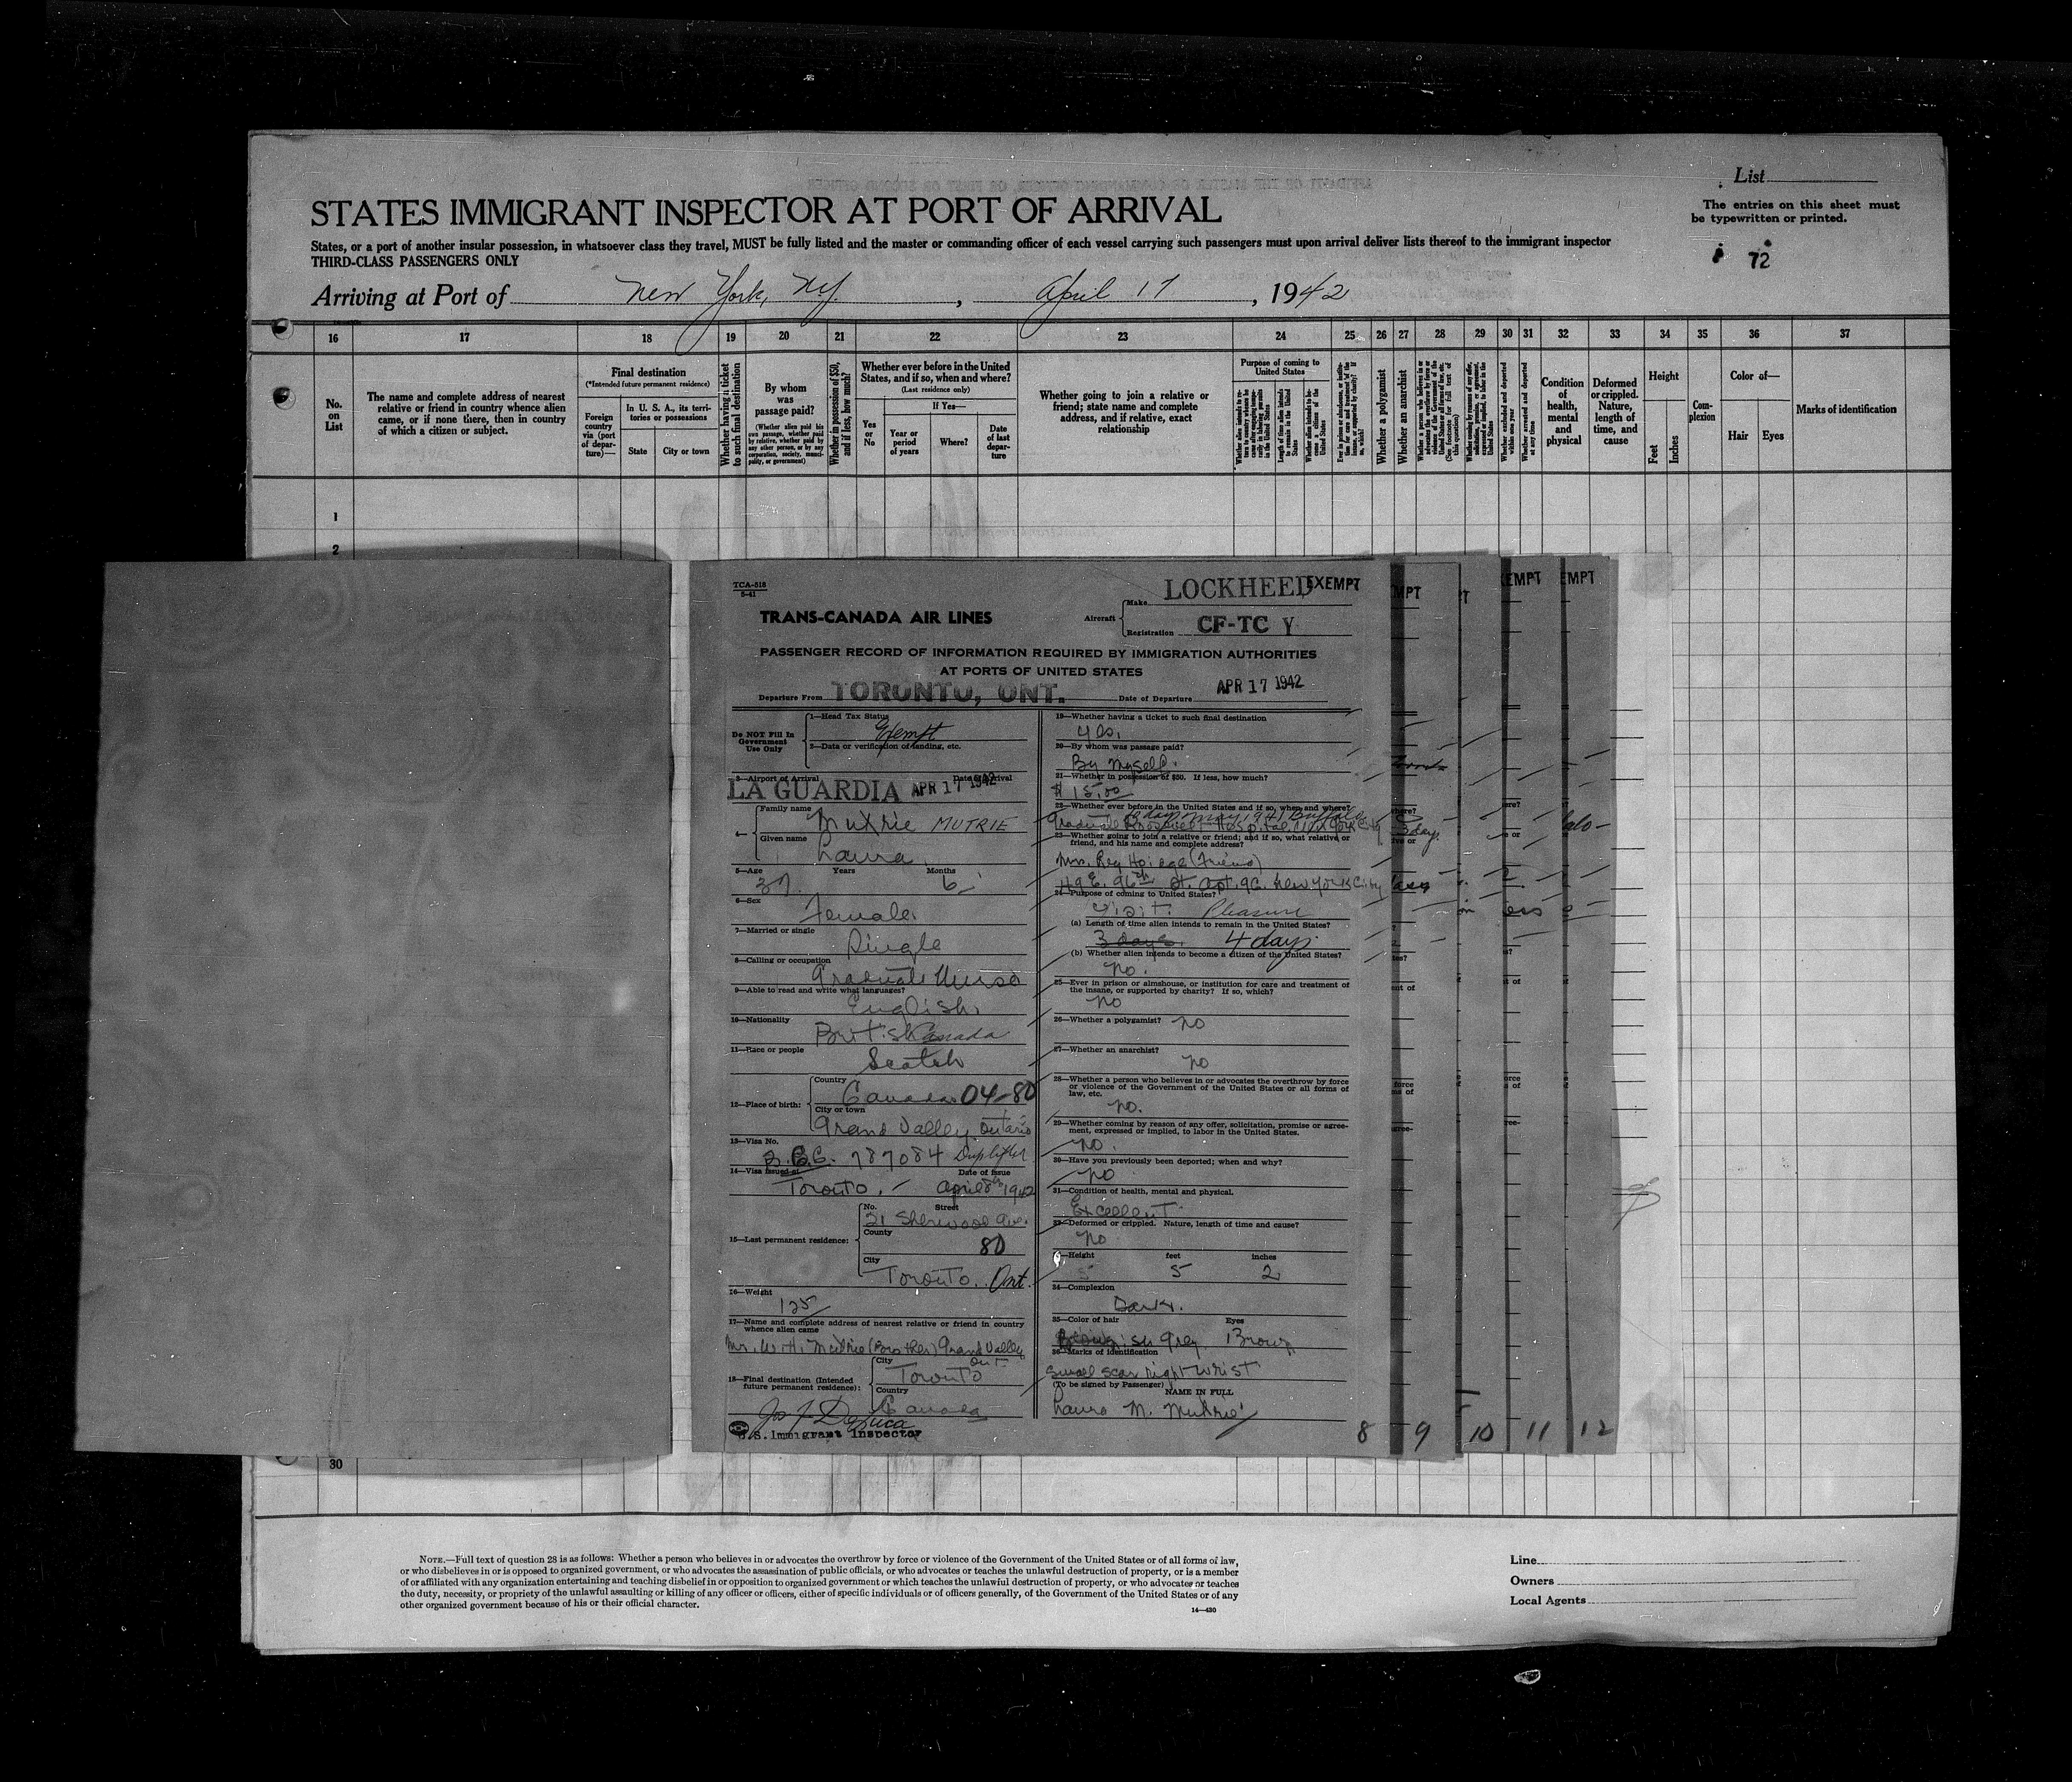 List
The entries on this sheet must
be typewritten or printed.
72
STATES IMMIGRANT INSPECTOR AT PORT OF ARRIVAL
States, or a port of another insular possession, in whatsoever class they travel, MUST be fully listed and the master or commanding officer of each vessel carrying such passengers must upon arrival deliver lists thereof to the immigrant inspector
THIRD-CLASS PASSENGERS ONLY
Arriving at Port of New York, NY. , April 17 , 1942
16 17 18 19 20 21 22 23 24 25 26 27 28 29 30 31 32 33 34 35 36 37
No. on List
The name and complete address of nearest
relative or friend in country whence alien
came, or if none there, then in country
of which a citizen or subject.
Final destination
(*Intended future permanent residence)
Foreign country via (port of departure)—
In U. S. A., its territories or possessions
State
City or town
Whether having a ticket to such final destination
By whom was passage paid?
(Whether alien paid his own passage, whether paid by relative, whether paid by any other person, or by any corporation, society, municipality, or government)
Whether in possession of $50, and if less, how much?
Whether ever before in the United
States, and if so, when and where?
(Last residence only)
Yes or No
If Yes—
Year or period of years
Where?
Date of last departure
Whether going to join a relative or
friend; state name and complete
address, and if relative, exact
relationship
Purpose of coming to
United States
Whether a polygamist
Whether an anarchist
Condition of health, mental and physical
Deformed or crippled. Nature, length of time, and cause
Height
Feet
Inches
Complexion
Color of—
Hair
Eyes
Marks of identification
1
2
TCA-518
5-41
TRANS-CANADA AIR LINES
Aircraft
Make LOCKHEED
EXEMPT
Registration CF-TC Y
PASSENGER RECORD OF INFORMATION REQUIRED BY IMMIGRATION AUTHORITIES
AT PORTS OF UNITED STATES
Departure From TORONTO, ONT. Date of Departure APR 17 1942
Do NOT Fill In
Government
Use Only
1—Head Tax Status
Exempt
2—Data or verification of landing, etc.
3—Airport of Arrival Date of Arrival
LA GUARDIA APR 17 1942
4—
Family name
Mutrie MUTRIE
Given name
Laura
5—Age Years Months
37 6
6—Sex
Female
7—Married or single
Single
8—Calling or occupation
Graduate Nurse
9—Able to read and write what languages?
English
10—Nationality
British Canada
11—Race or people
Scotch
12—Place of birth:
Country
Canada 04-80
City or town
Grand Valley Ontario
13—Visa No.
787084
14—Visa issued at Date of Issue
Toronto. April 8th 1942
15—Last permanent residence:
No. Street
21 Sherwood Ave.
County
80
City
Toronto. Ont.
16—Weight
125
17—Name and complete address of nearest relative or friend in country
whence alien came
Mr. W. H. Mutrie (Brother) Grand Valley
Ont
18—Final destination (Intended
future permanent residence):
City
Toronto
Country
Canada
U.S. Immigrant Inspector
19—Whether having a ticket to such final destination
yes.
20—By whom was passage paid?
By Myself.
21—Whether in possession of $50. If less, how much?
$15.00
22—Whether ever before in the United States and if so, when and where?
23—Whether going to join a relative or friend; and if so, what relative or
friend, and his name and complete address?
49 E. 96th St. Apt. 9C. New York City
24—Purpose of coming to United States?
Visit. Pleasure
(a) Length of time alien intends to remain in the United States?
3 days. 4 days
(b) Whether alien intends to become a citizen of the United States?
no.
25—Ever in prison or almshouse, or institution for care and treatment of
the insane, or supported by charity? If so, which?
no
26—Whether a polygamist? no
27—Whether an anarchist?
no
28—Whether a person who believes in or advocates the overthrow by force
or violence of the Government of the United States or all forms of
law, etc.
no.
29—Whether coming by reason of any offer, solicitation, promise or agree-
ment, expressed or implied, to labor in the United States.
no.
30—Have you previously been deported; when and why?
no
31—Condition of health, mental and physical.
Excellent
32—Deformed or crippled. Nature, length of time and cause?
no
Height feet inches
5 2
34—Complexion
Dark.
35—Color of hair Eyes
Grey Brown
36—Marks of identification
Small scar right wrist
(To be signed by Passenger) NAME IN FULL
Laura M. Mutrie
8 9 10 11 12
30
NOTE.—Full text of question 28 is as follows: Whether a person who believes in or advocates the overthrow by force or violence of the Government of the United States or of all forms of law,
or who disbelieves in or is opposed to organized government, or who advocates the assassination of public officials, or who advocates or teaches the unlawful destruction of property, or is a member
of or affiliated with any organization entertaining and teaching disbelief in or opposition to organized government or which teaches the unlawful destruction of property, or who advocates or teaches
the duty, necessity, or propriety of the unlawful assaulting or killing of any officer or officers, either of specific individuals or of officers generally, of the Government of the United States or of any
other organized government because of his or their official character.
14—430
Line
Owners
Local Agents